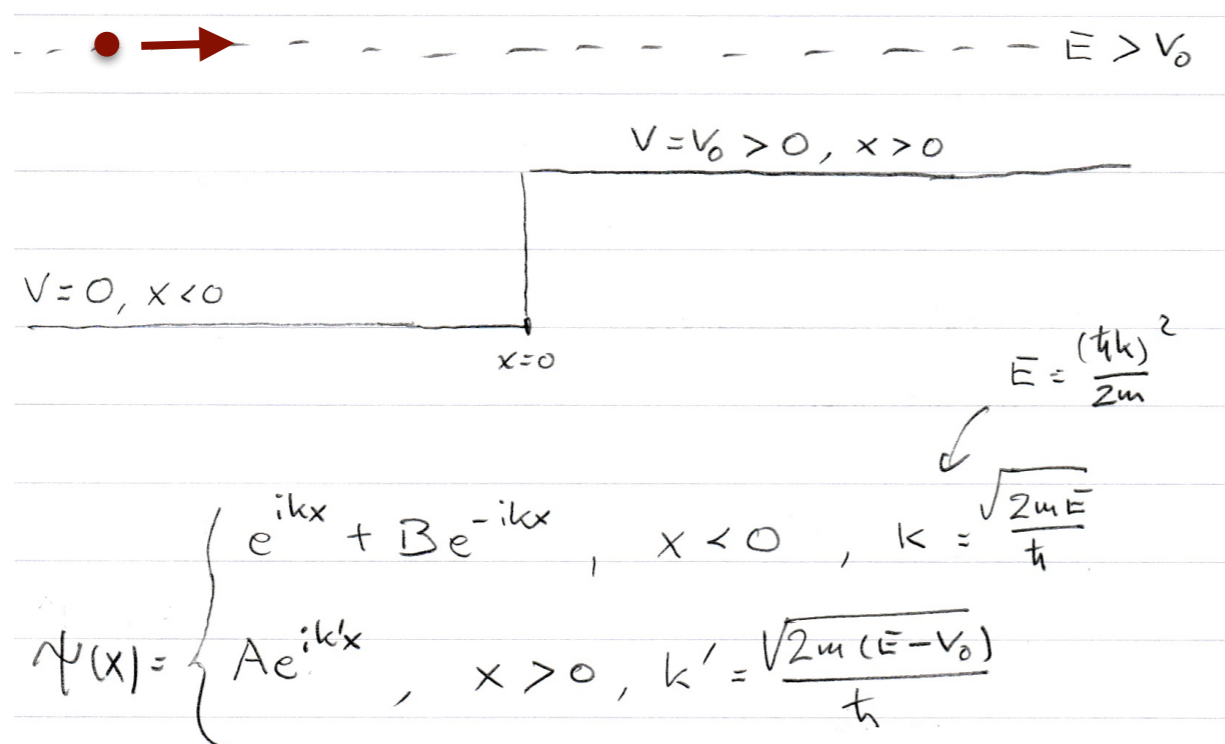 E > V₀
V = V₀ > 0, x > 0
V = 0, x < 0
x = 0
E = (ħk)²/2m
e^{ikx} + Be^{-ikx}, x < 0, k = √(2mE)/ħ
ψ(x) = { Ae^{ik'x}, x > 0, k' = √(2m(E-V₀))/ħ